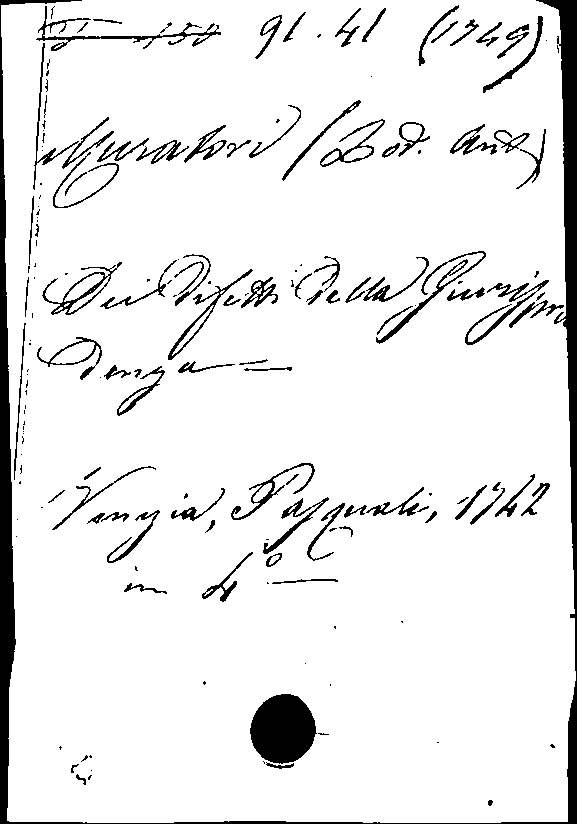 T 150 91.41 (1749)
Muratori (Lod. Ant)
Dei Difetti della Giurispru
denza
Venezia, Pasquali, 1742
in 4º